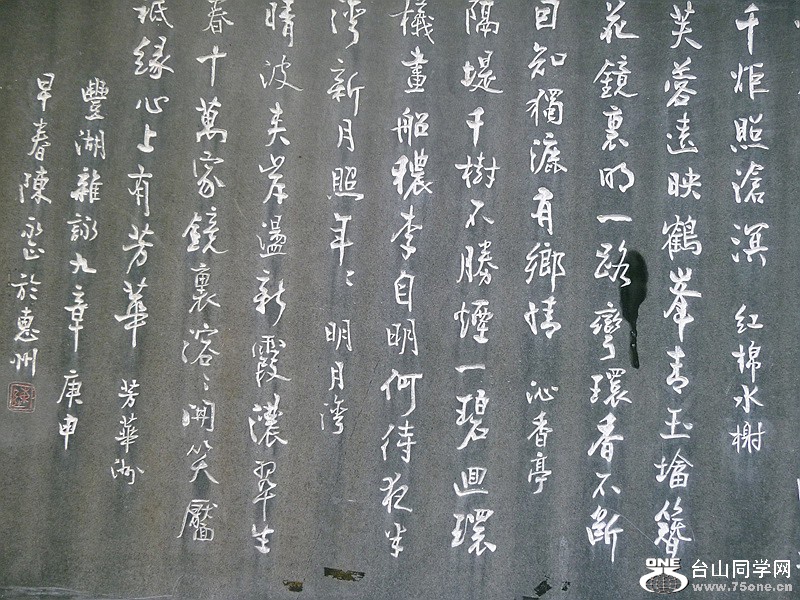 千炬照滄溟 紅棉水榭
芙蓉遠映鶴峯青玉墖簪
花鏡裏明一路彎環香不斷
自知獨漉有鄉情 沁香亭
隔堤千樹不勝煙一碧迴環
檥畫船穠李自明何待夜半
灣新月照年〻 明月灣
晴波夾岸盪新霞濃翠生
春十萬家鏡裏溶〻開笑靨
祗緣心上有芳華 芳華洲
豐湖雜詠九章 庚申
早春陳永正於惠州
ONE
台山同学网
www.75one.cn